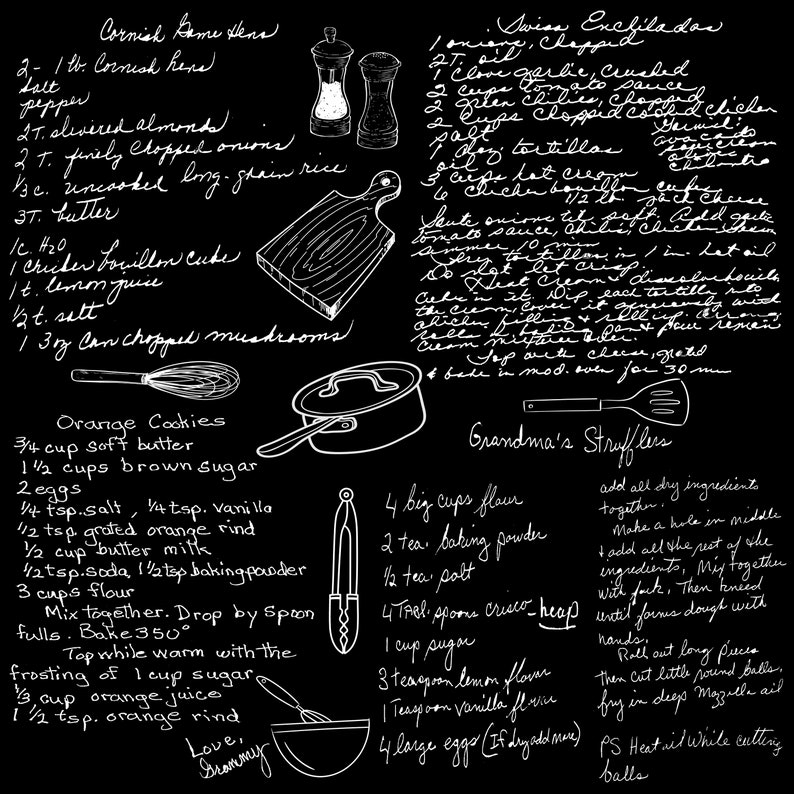 Cornish Game Hens
2 - 1 lb. Cornish hens
salt
pepper
2T. slivered almonds
2 T. finely chopped onions
1/3 c. uncooked long-grain rice
3T. butter
1c. H2O
1 chicken bouillon cube
1 t. lemon juice
1/2 t. salt
1 3oz can chopped mushrooms
Swiss Enchiladas
1 onions, chopped
2T. oil
1 clove garlic, crushed
2 cups tomato sauce
2 green chilies, chopped
2 cups chopped cooked chicken
salt
1 doz tortillas
oil
3 cups hot cream
6 chicken bouillon cubes
1/2 lb. jack cheese
Garnish:
avocado
sour cream
olives
Saute onions til soft. Add garlic
tomato sauce, chilis, chicken
simmer 10 min
Fry tortillas in 1 in. hot oil
Do not let crisp.
Heat cream & dissolve bouillon
cubes in it. Dip each tortilla into
the cream, cover it generously with
chicken filling & roll up. Arrange
rolls in baking pan & pour remain
cream mixture over.
Top with cheese, grated
& bake in mod. oven for 30 min
Orange Cookies
3/4 cup soft butter
1 1/2 cups brown sugar
2 eggs
1/4 tsp. salt, 1/4 tsp. vanilla
1/2 tsp. grated orange rind
1/2 cup butter milk
1/2 tsp. soda, 1 1/2 tsp baking powder
3 cups flour
Mix together. Drop by spoon
fulls. Bake 350°
Top while warm with the
frosting of 1 cup sugar
1/3 cup orange juice
1 1/2 tsp. orange rind
Love,
Grammy
Grandma's Strufflers
4 big cups flour
2 tea. baking powder
1/2 tea. salt
4 TABL. spoons crisco - heap
1 cup sugar
3 teaspoon lemon flavor
1 Teaspoon vanilla flavor
4 large eggs (If dry add more)
add all dry ingredients
together.
Make a hole in middle
& add all the rest of the
ingredients. Mix together
with fork. Then kneed
until forms dough with
hands.
Roll out long pieces
then cut little round balls.
fry in deep Mazzola oil
PS Heat oil while cutting
balls